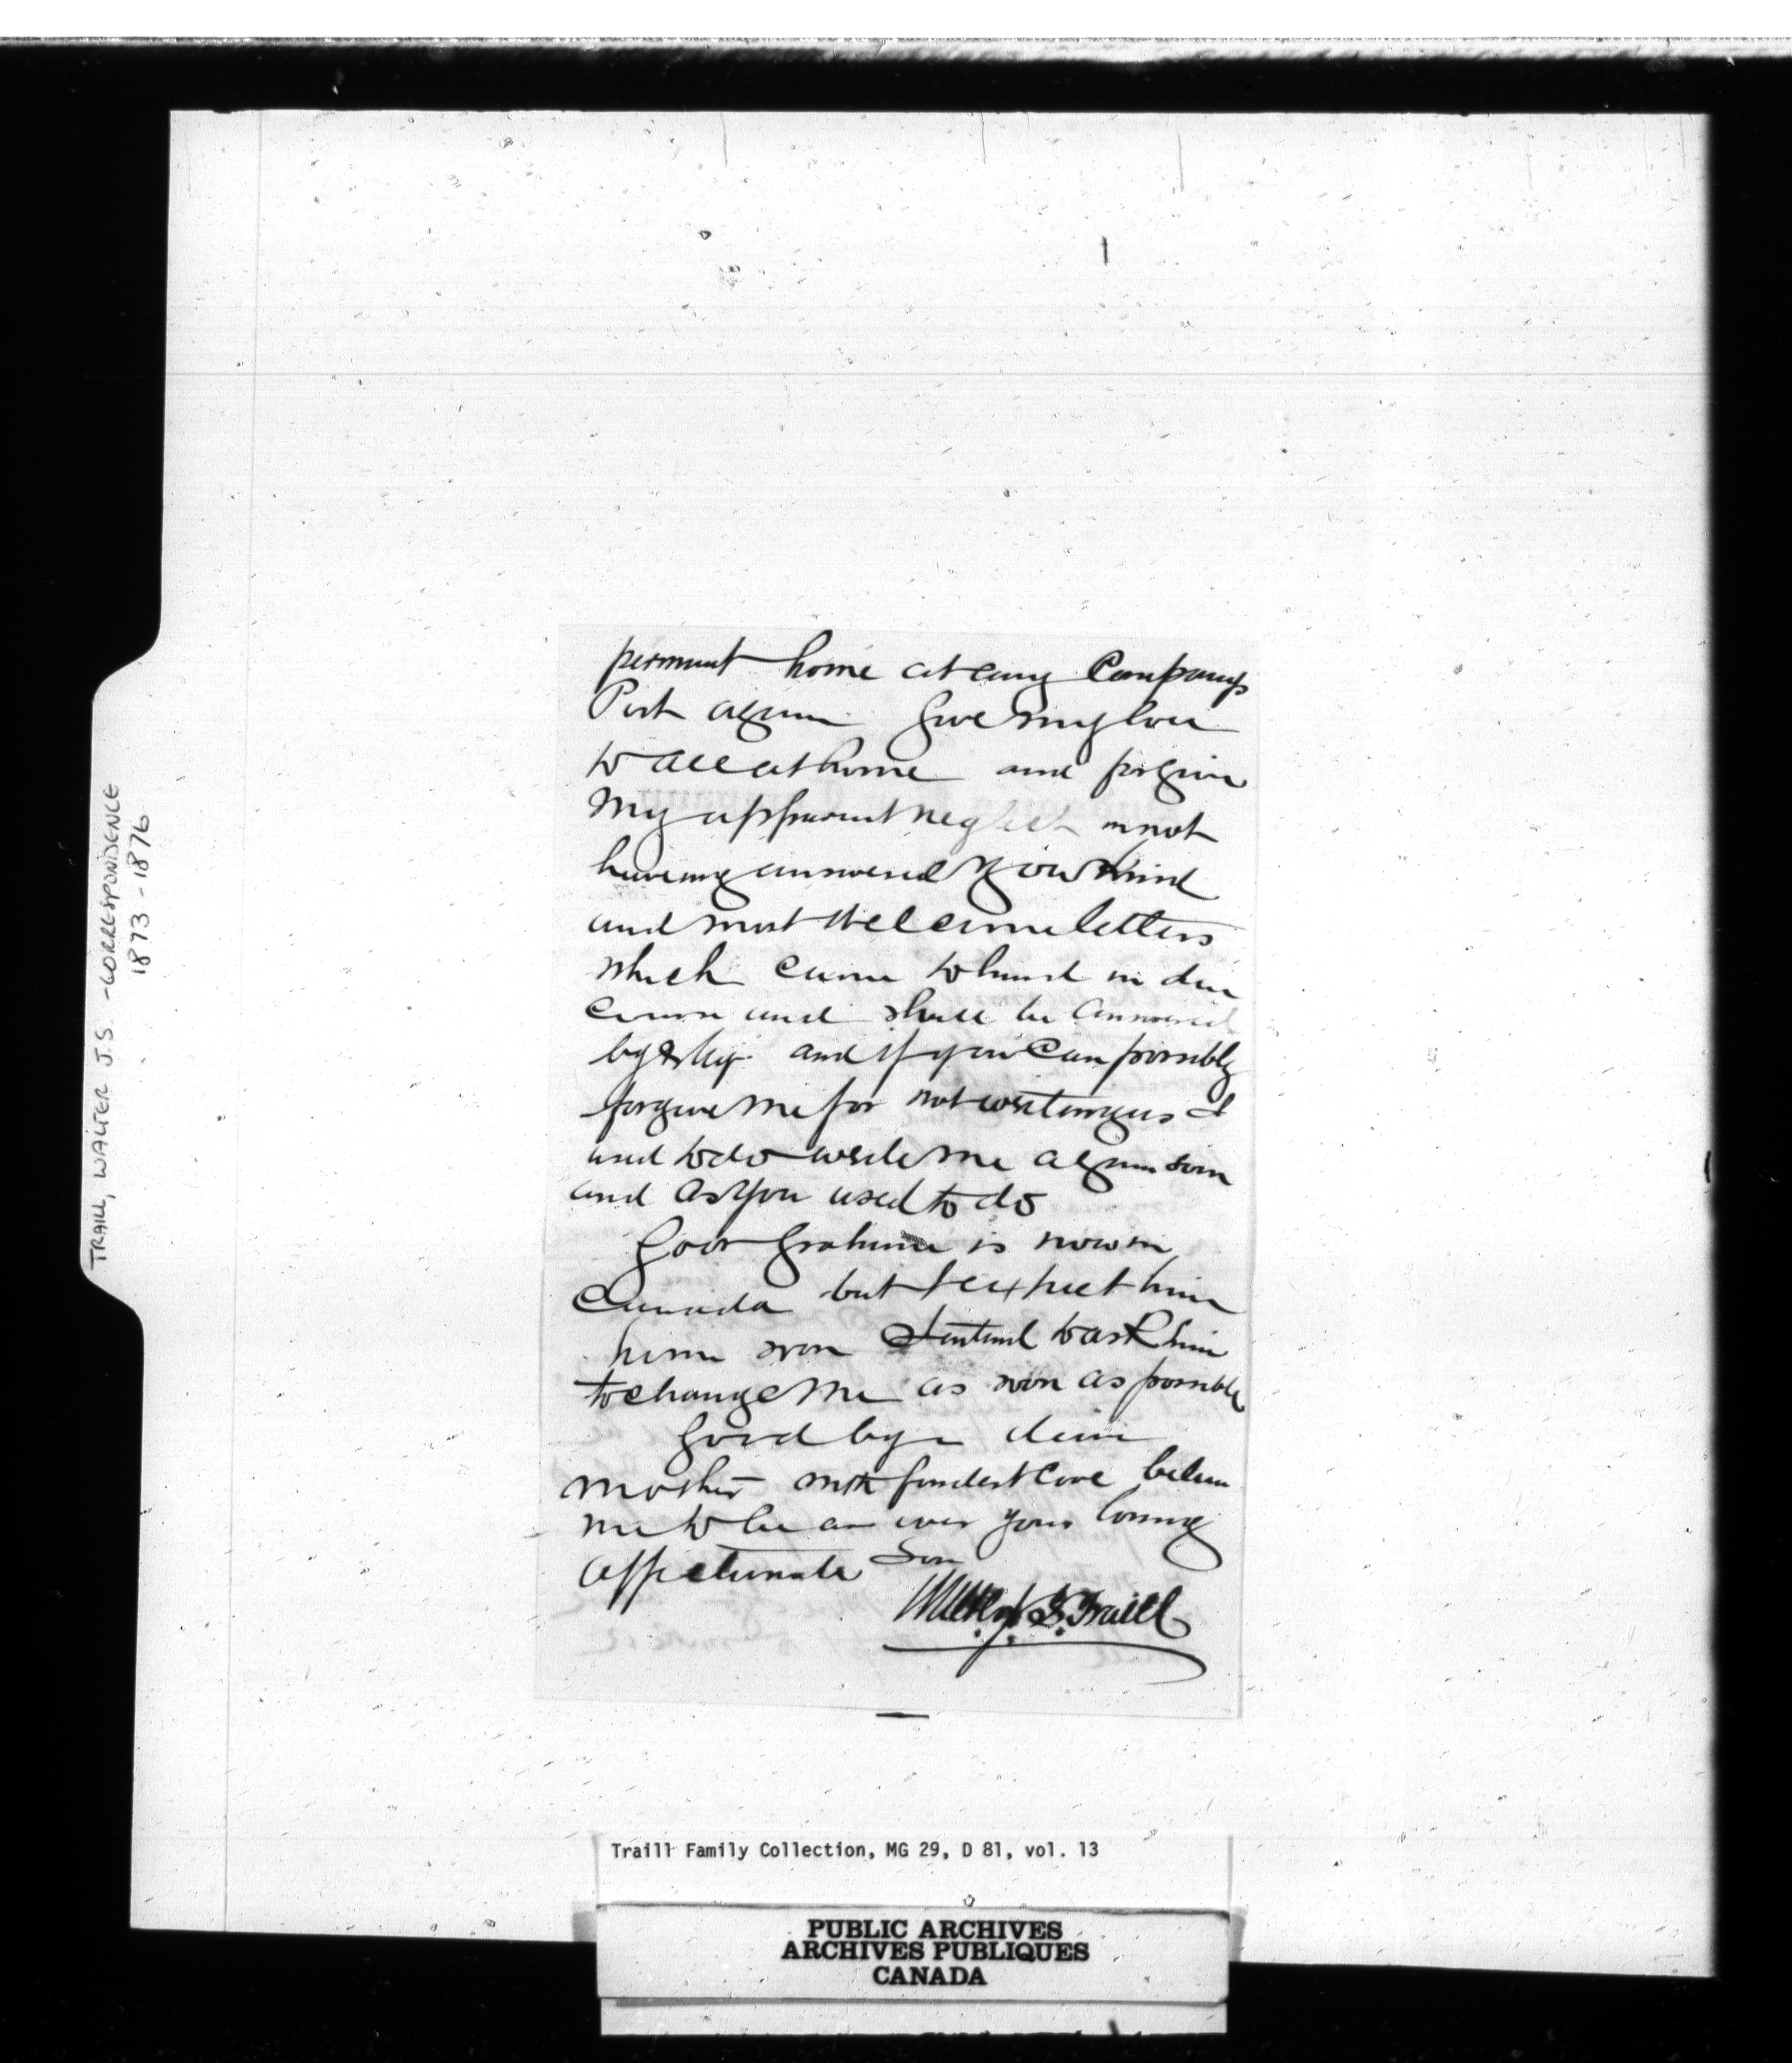 TRAILL, WALTER J.S. - CORRESPONDENCE
1873-1876
permunt home at any Companys
Post again Give my love
to all at home and forgive
my apparent neglect in not
having answered your kind
and most welcome letters
which came to hand in due
course and shall be answered
by & by and if you can possibly
forgive me for not writing as I
used to do write me again soon
and as you used to do
Govr Grahame is now in
Canada but I expect him
home soon I intend to ask him
to change me as soon as possible
Good bye dear
Mother with fondest love believe
me to be as ever your loving
affectionate Son
Walter J. S. Traill
Traill Family Collection, MG 29, D 81, vol. 13
PUBLIC ARCHIVES
ARCHIVES PUBLIQUES
CANADA